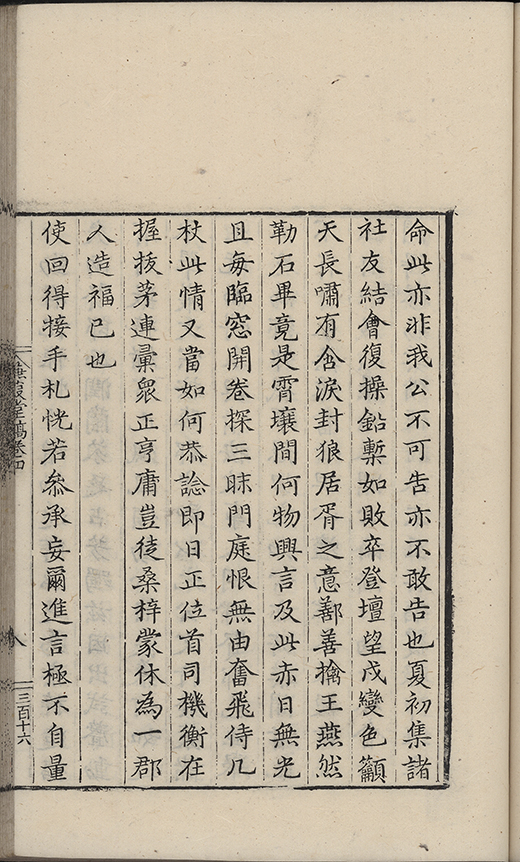 命此亦非我公不可告亦不敢告也夏初集諸
社友結會復操鉛槧如敗卒登壇望戍變色籲
天長嘯有含淚封狼居胥之意鄯善擒王燕然
勒石畢竟是霄壤間何物興言及此赤日無光
且每臨窓開卷探三昧門庭恨無由奮飛侍几
杖此情又當如何恭諗即日正位首司機衡在
握拔茅連彙衆正亨庸豈徒桑梓蒙休為一郡
人造福已也
使回得接手札恍若叅承妄爾進言極不自量
堂稿卷四
八
三百十六